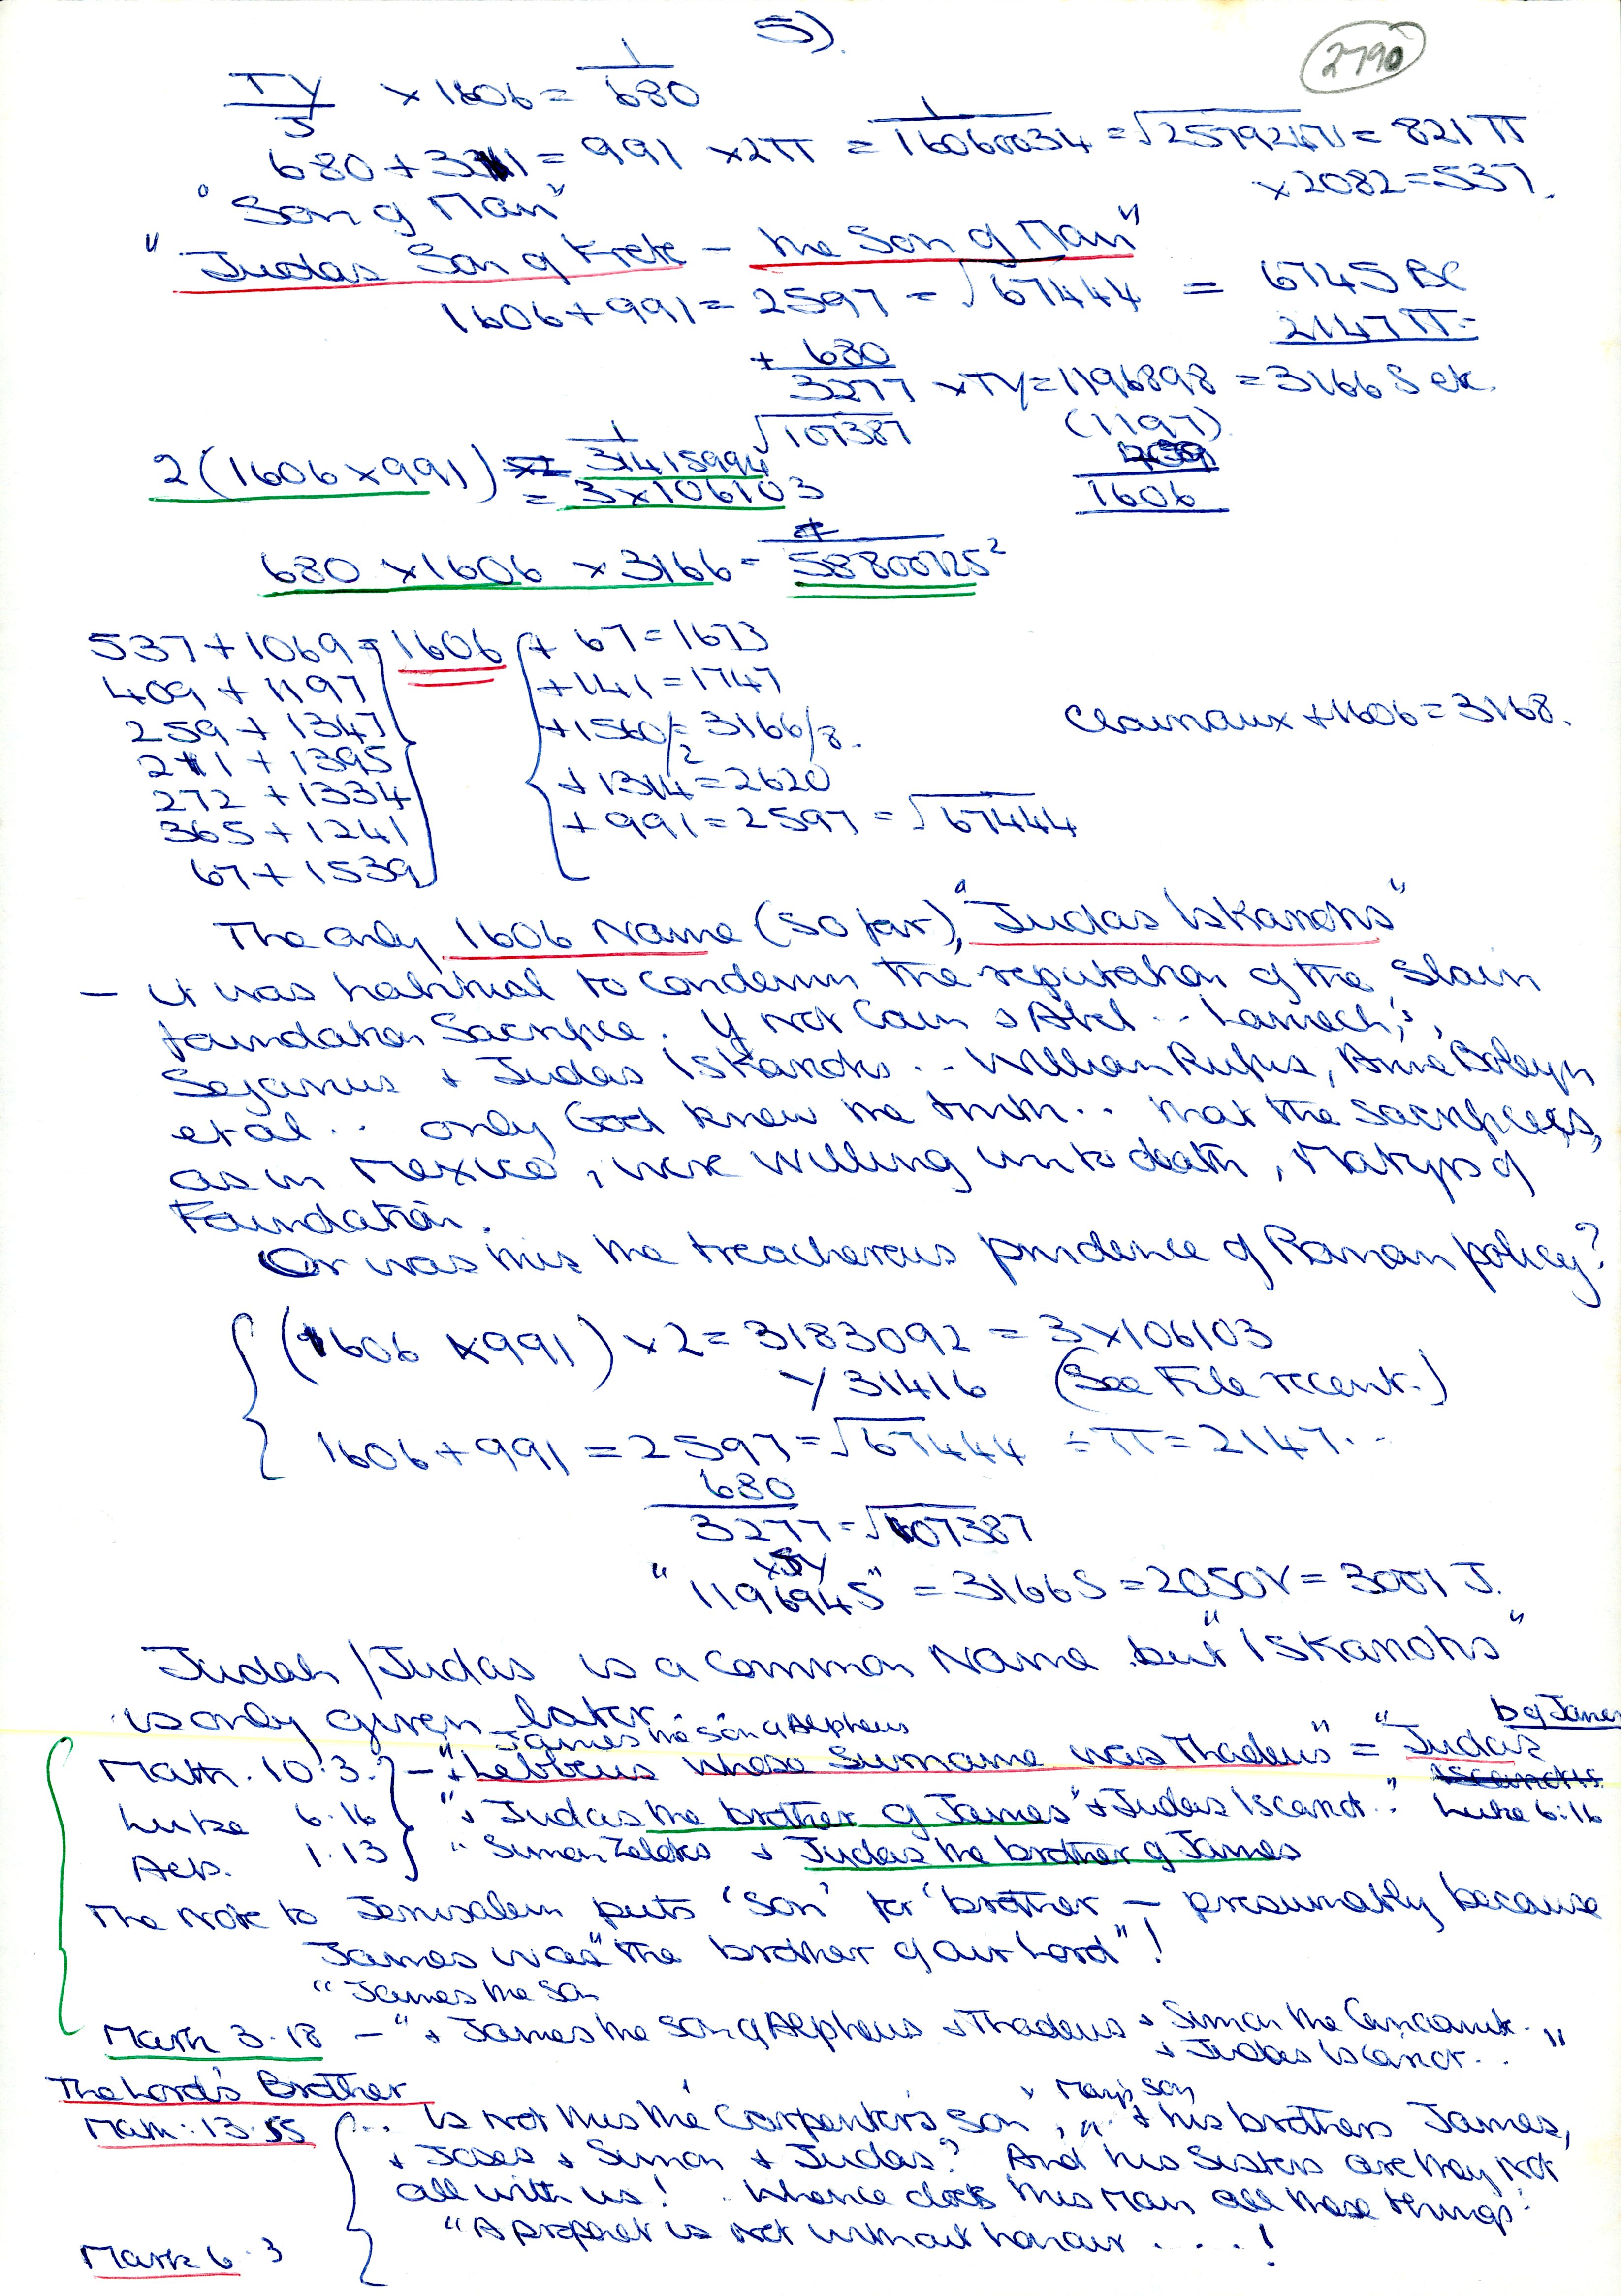 5).
2790
TY/J × 1606 = 1/680
680 + 311 = 991 × 2π = 1/16060034 = √25792471 = 821 π
× 2082 = 537.
"Son of Man"
"Judas Son of Krete – the Son of Man"
1606 + 991 = 2597 = √67444 = 6745 BC
2147 π
+ 680
3277 × TY = 1196898 = 3166 S ek.
√107387 (1197)
409
1606
2(1606 × 991) = 1/31415994
= 3 × 106103
680 × 1606 × 3166 = 1/58800725²
537 + 1069 = 1606 + 67 = 1673
409 + 1197 + 141 = 1747
259 + 1347 + 1560/2 = 3166/8. Clairvaux + 1606 = 3168.
211 + 1395
272 + 1334 + 1314 = 2620
365 + 1241 + 991 = 2597 = √67444
67 + 1539
The only 1606 Name (so far), "Judas Iskariotis"
– it was habitual to condemn the reputation of the slain
foundation Sacrifice. If not Cain & Abel .. Lamech, ?,
Sejanus + Judas Iskariotis .. William Rufus, Anne Boleyn
et al .. only God knew the truth .. that the sacrifices,
as in Mexico, were willing unto death, Martyrs of
Foundation.
Or was this the treacherous prudence of Roman policy?
(1606 × 991) × 2 = 3183092 = 3 × 106103
Y 31416 (See File recent.)
1606 + 991 = 2597 = √67444 ÷ π = 2147..
680
3277 = √107387
"1196945" = 3166 S = 2050 V = 3001 J.
Judah / Judas is a common Name but "Iskariotis"
is only given later.
James the son of Alpheus
Math. 10:3. – "+ Lebbeus whose Surname was Thadeus" = "Judas b of James
Luke 6.16 "+ Judas the brother of James" + Judas Iscariot.." Luke 6:16
Acts. 1.13 "Simon Zelotes + Judas the brother of James
The note to Jerusalem puts 'son' for 'brother' – presumably because
James was "the brother of our Lord"!
"James the son
Mark 3.18 – "+ James the son of Alpheus + Thadeus + Simon the Canaanite.
+ Judas Iscariot.."
The Lord's Brother
Math: 13.55 .. Is not this the Carpenter's son, .. + his brothers James,
Mary's son
+ Joses + Simon + Judas? And his Sisters are they not
all with us! . Whence does this Man all these things?
"A prophet is not without honour . . . . !
Mark 6.3